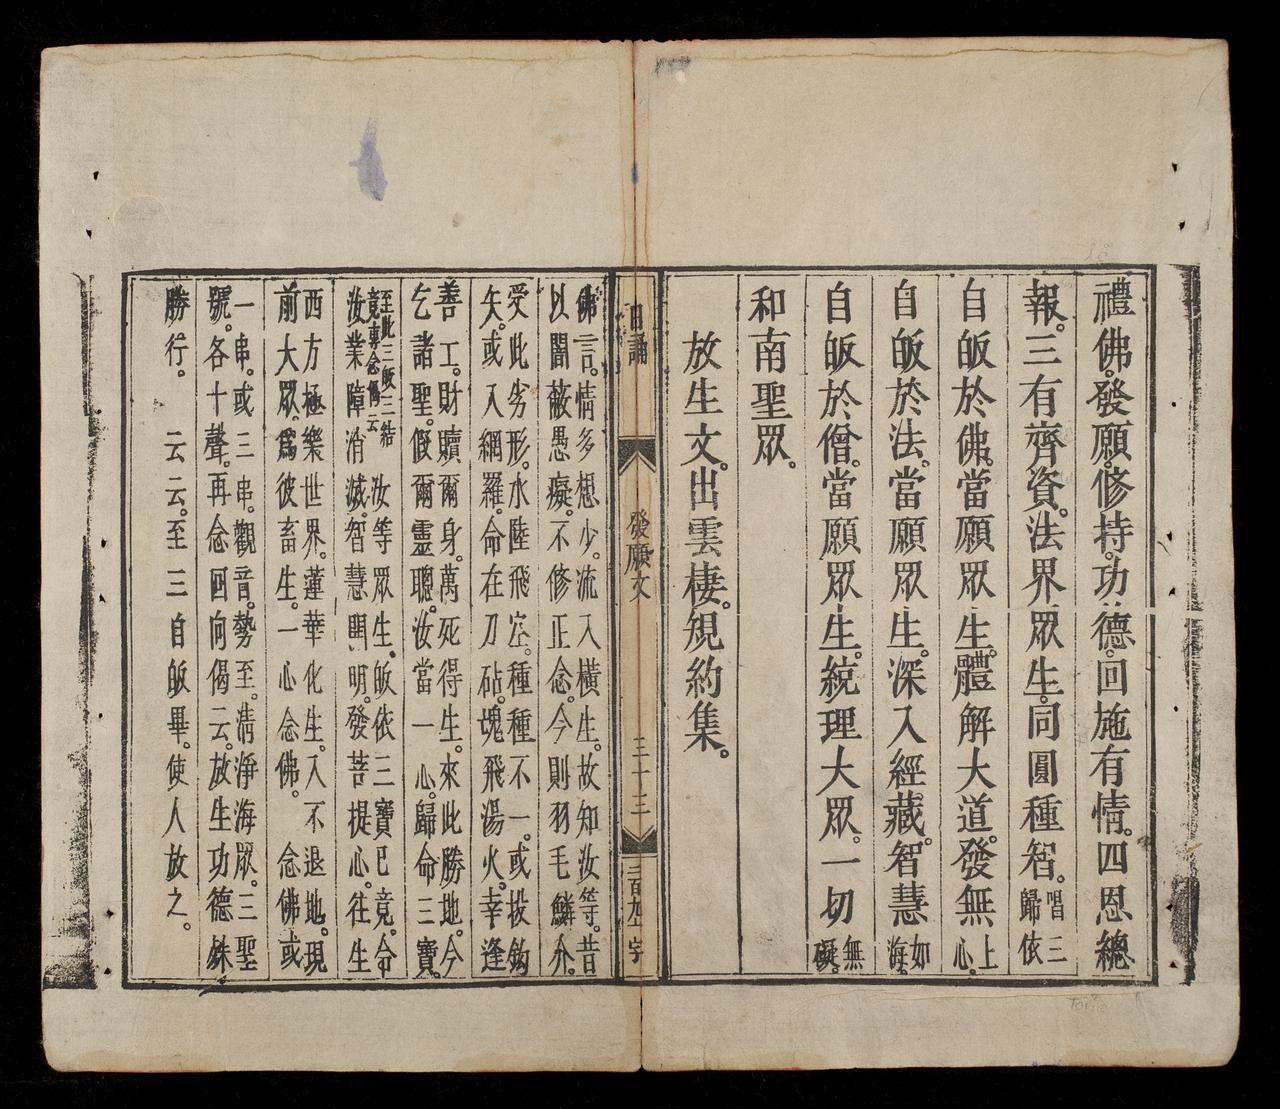 禮佛。發願。修持。功德。回施有情。四恩總
報。三有齊資。法界眾生。同圓種智。唱三歸依
自皈於佛。當願眾生。體解大道。發無上心。
自皈於法。當願眾生。深入經藏。智慧如海。
自皈於僧。當願眾生。統理大眾。一切無礙。
和南聖眾。
放生文。出雲棲。規約集。
日誦
發願文
三十三
佛言。情多想少。流入橫生。故知汝等。昔
以闇蔽愚癡。不修正念。今則羽毛鱗介。
受此劣形。水陸飛空。種種不一。或投鉤
矢。或入網羅。命在刀砧。塊飛湯火。幸逢
善工。財贖爾身。萬死得生。來此勝地。今
乞諸聖。假爾靈聰。汝當一心。歸命三寶。
至此三皈三結
竟專念偈云
汝等眾生。皈依三寶已竟。今
汝業障消滅。智慧開明。發菩提心。往生
西方極樂世界。蓮華化生。入不退地。現
前大眾。為彼畜生。一心念佛。 念佛或
一串。或三串。觀音。勢至。清淨海眾。三聖
號。各十聲。再念回向偈云。放生功德銖
勝行。 云云。至三自皈畢。使人放之。